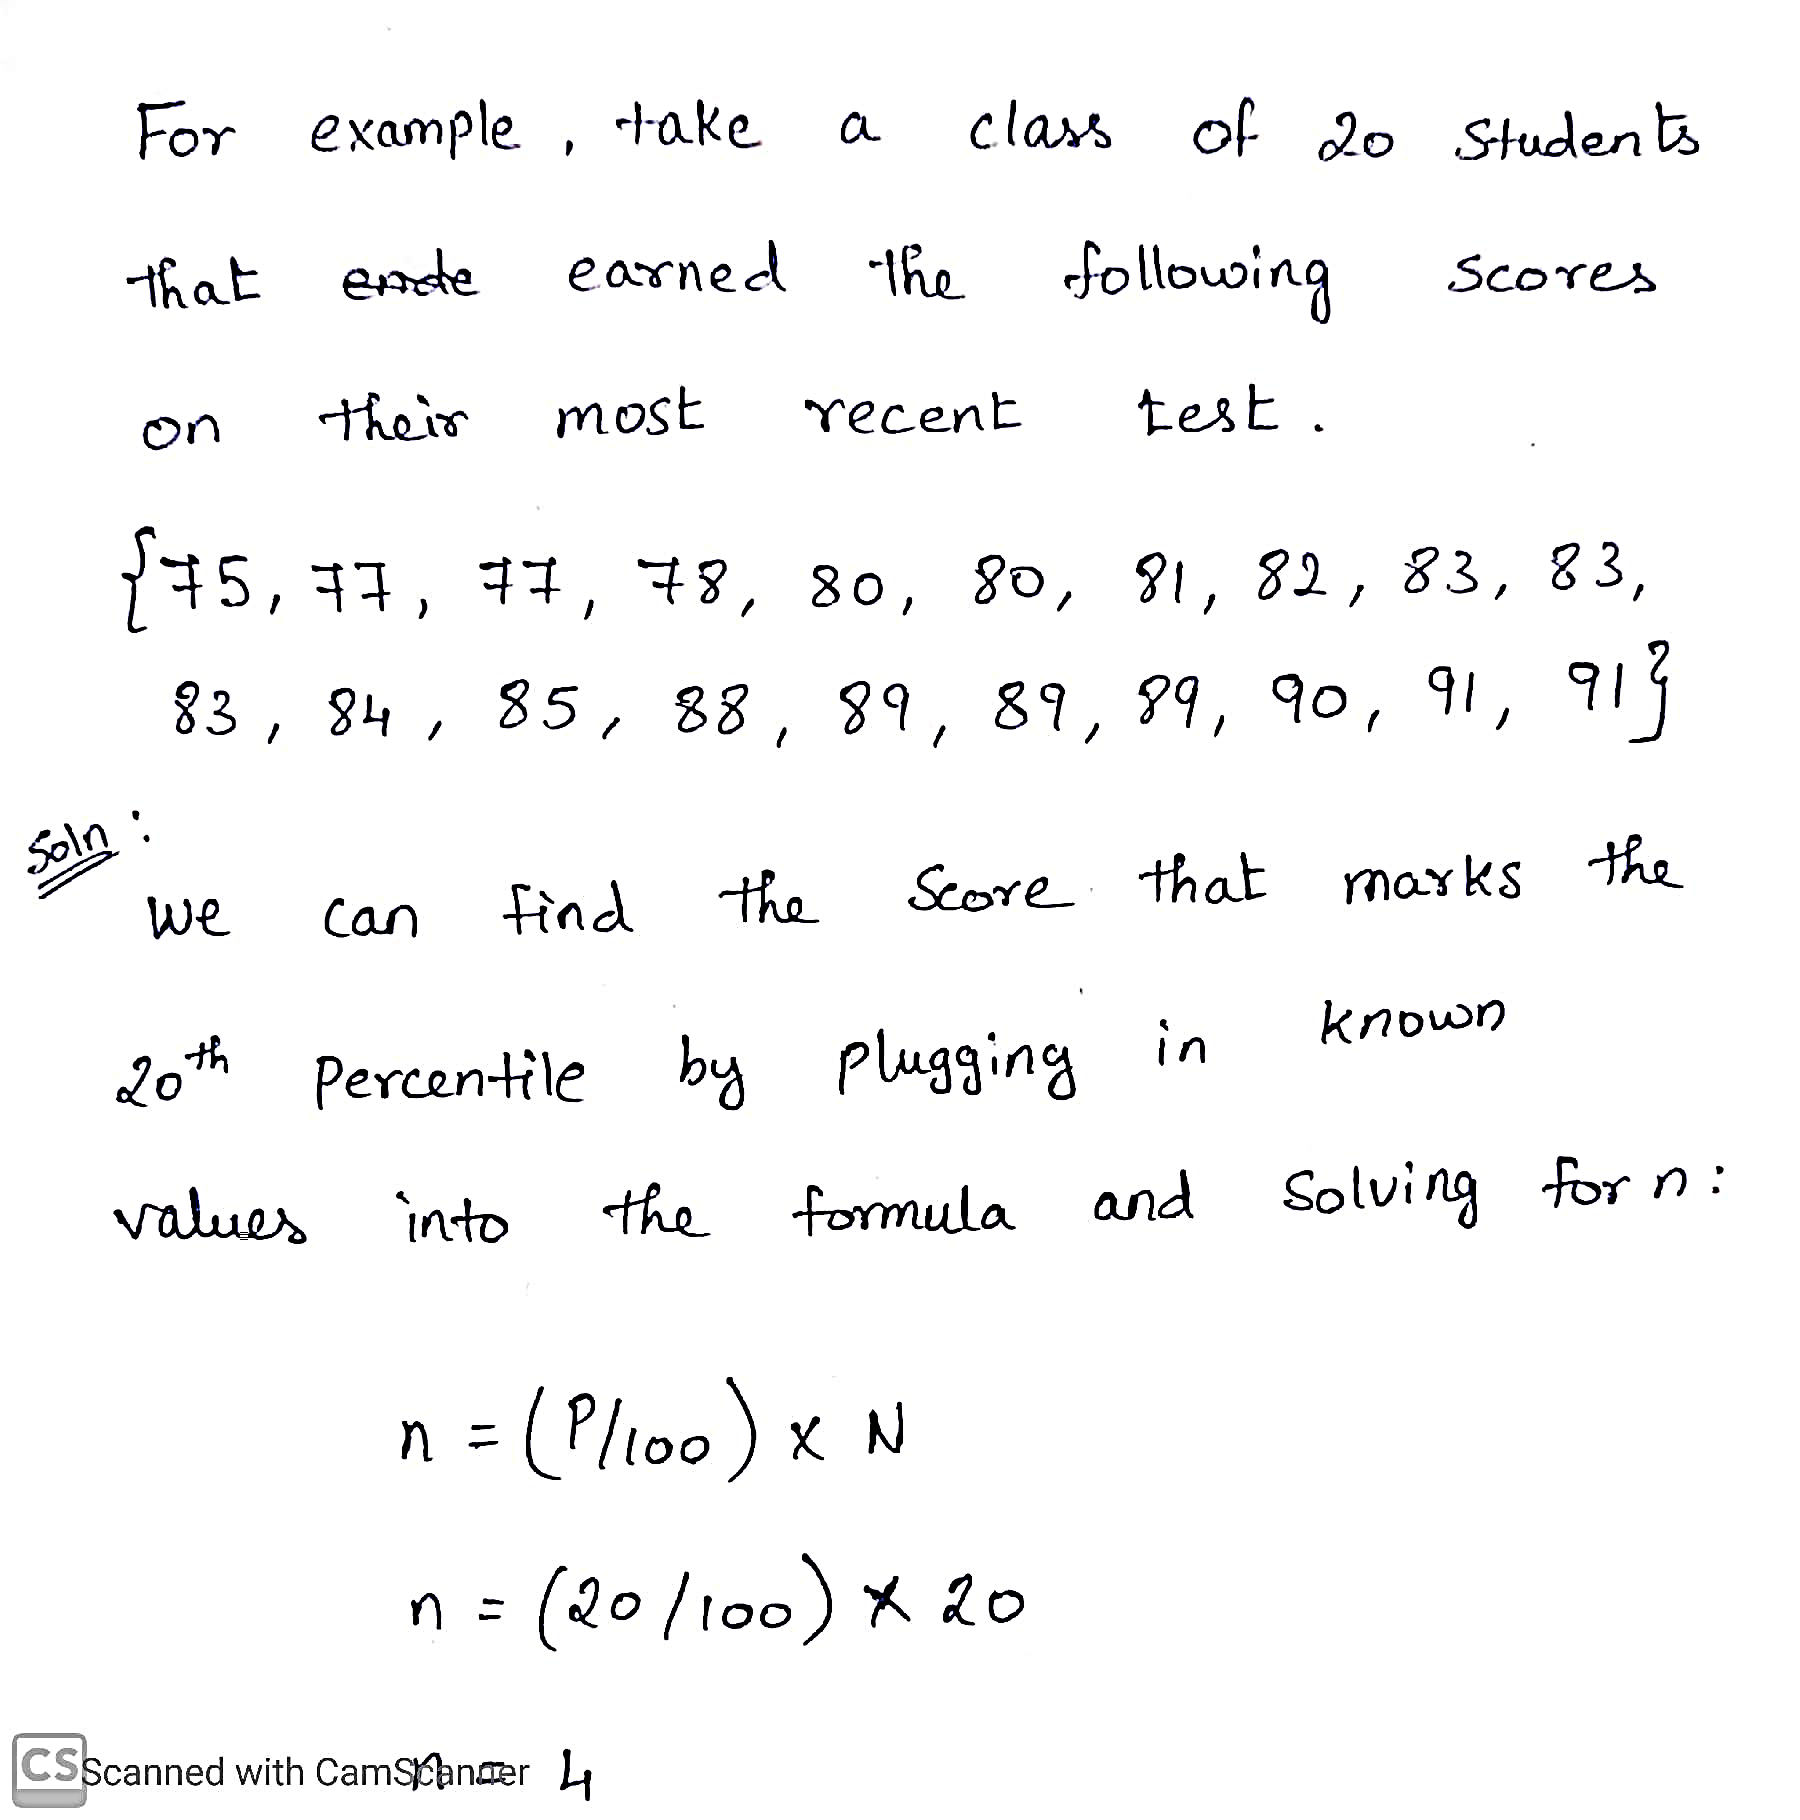 For example, take a class of 20 students
that earned the following scores
on their most recent test.
{75, 77, 77, 78, 80, 80, 81, 82, 83, 83,
83, 84, 85, 88, 89, 89, 89, 90, 91, 91}
Soln:
we can find the Score that marks the
20th Percentile by plugging in known
values into the formula and Solving for n:
n = (P/100) x N
n = (20/100) x 20
n = 4
CS Scanned with CamScanner